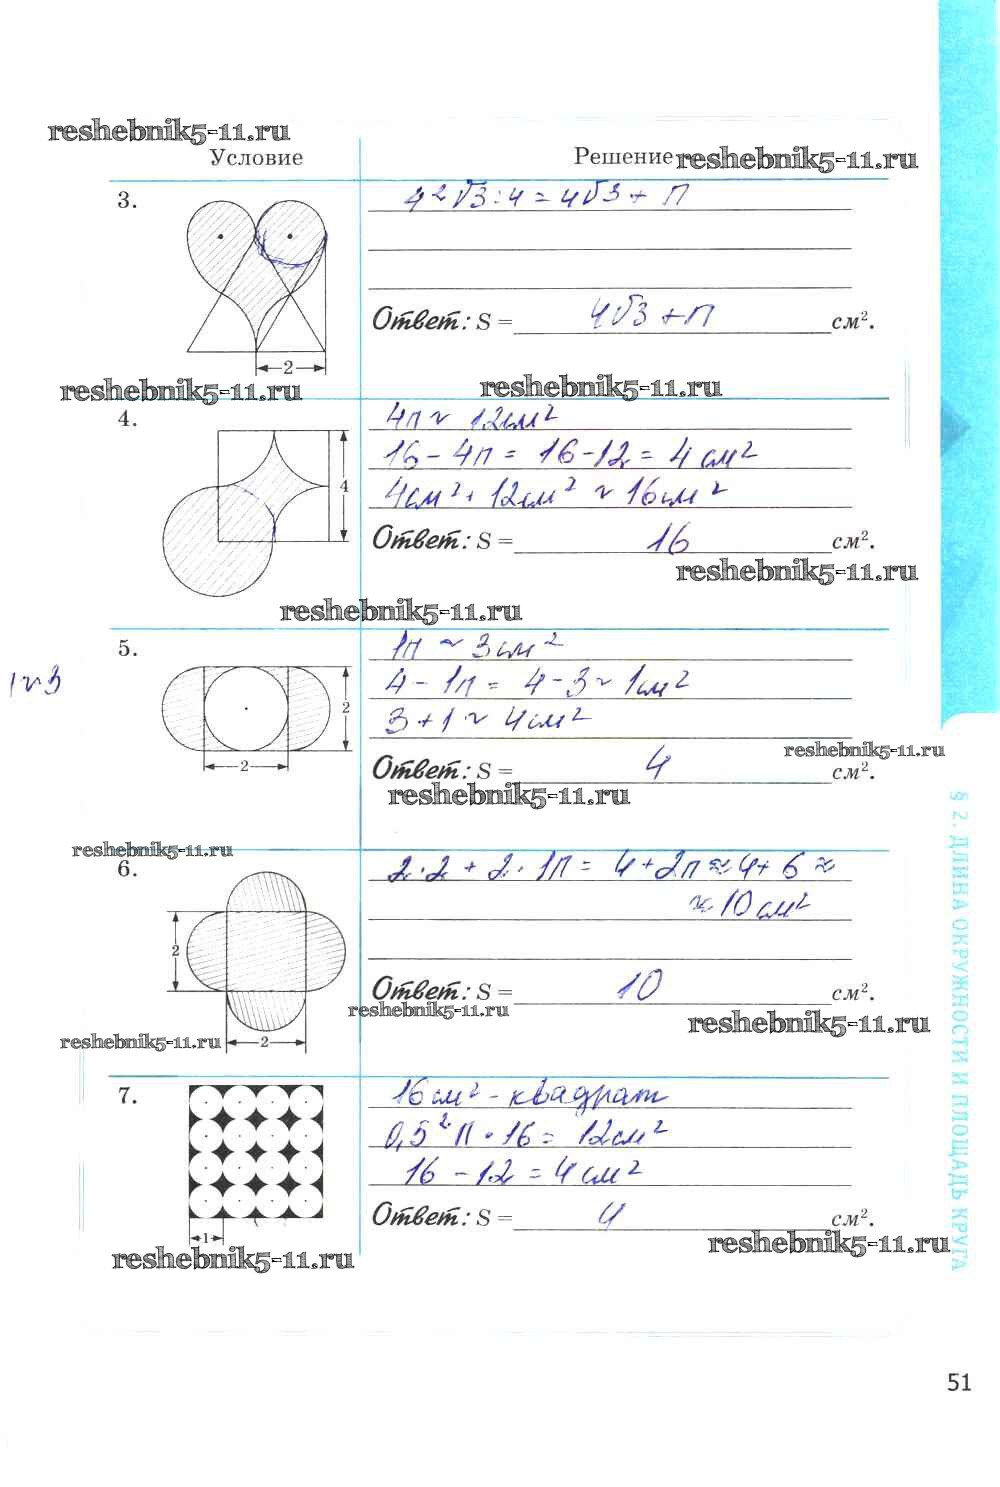 reshebnik5-11.ru
Условие
Решение reshebnik5-11.ru
3.
4²√3:4 = 4√3 + П
Ответ: S = 4√3 + П см².
2
reshebnik5-11.ru
reshebnik5-11.ru
4.
4П ~ 12см²
16 - 4П = 16 - 12 = 4 см²
4
4см² + 12см² ~ 16см²
Ответ: S = 16 см².
reshebnik5-11.ru
reshebnik5-11.ru
5.
1П ~ 3см²
4 - 1П = 4 - 3 ~ 1см²
2
3 + 1 ~ 4см²
2
Ответ: S = 4 см².
reshebnik5-11.ru
reshebnik5-11.ru
reshebnik5-11.ru
6.
2·2 + 2·1П = 4 + 2П ≈ 4 + 6 ≈
≈ 10 см²
2
Ответ: S = 10 см².
reshebnik5-11.ru
reshebnik5-11.ru
reshebnik5-11.ru
2
7.
16 см² - квадрат
0,5²П·16 = 12см²
16 - 12 = 4 см²
Ответ: S = 4 см².
1
reshebnik5-11.ru
reshebnik5-11.ru
§ 2. ДЛИНА ОКРУЖНОСТИ И ПЛОЩАДЬ КРУГА
51